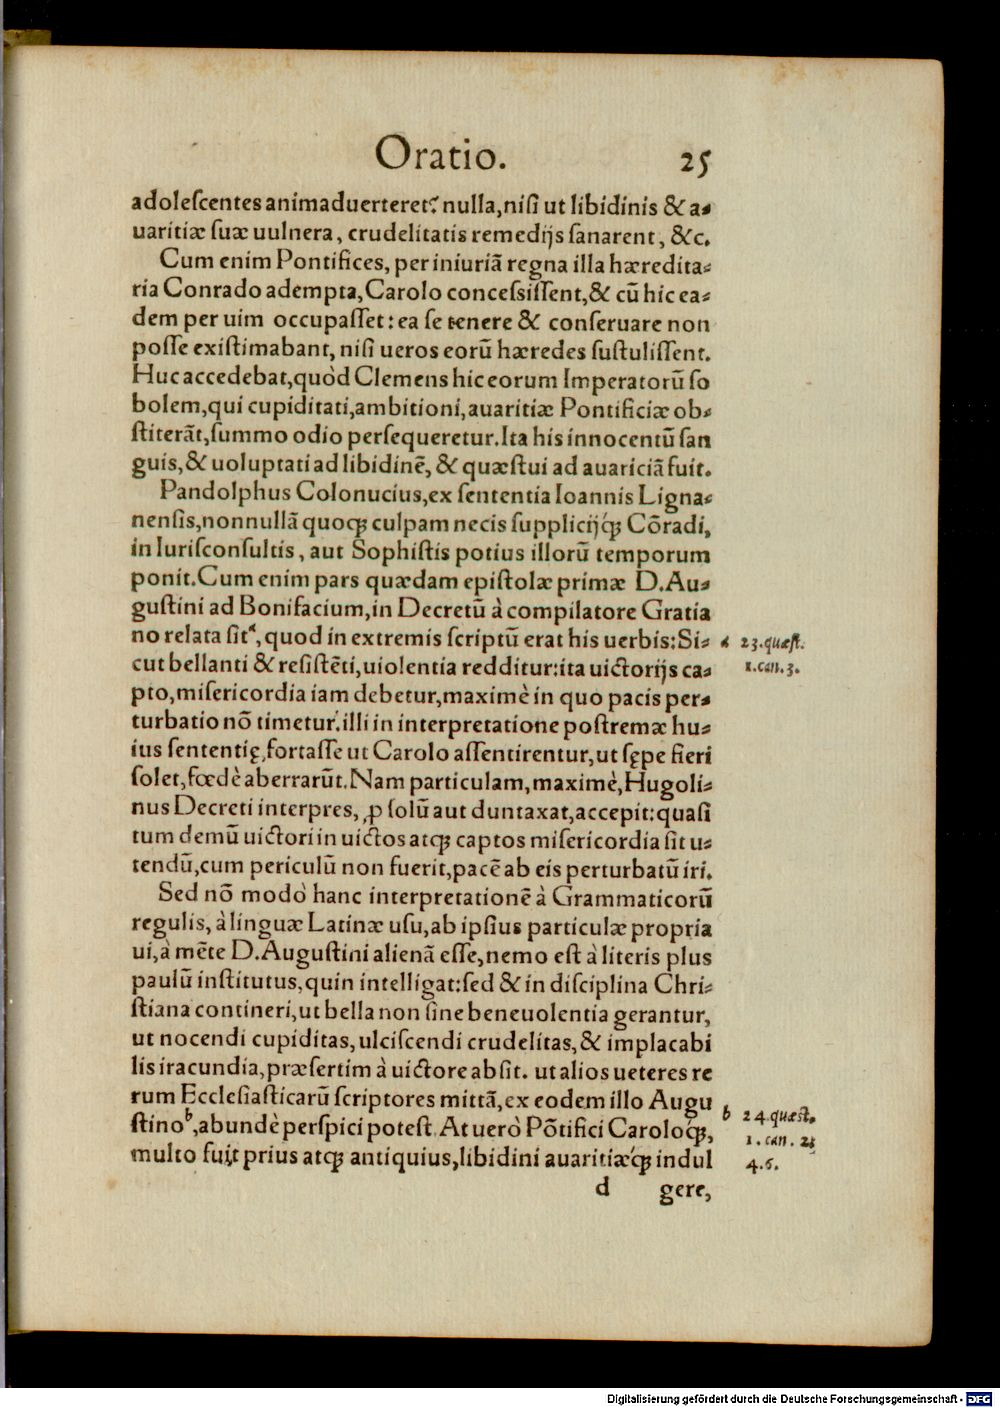 Oratio. 25
adolescentes animaduerteret? nulla, nisi ut libidinis & a-
uaritiæ suæ uulnera, crudelitatis remedijs sanarent, &c.
Cum enim Pontifices, per iniuriã regna illa hæredita-
ria Conrado adempta, Carolo concessissent, & cũ hic ea-
dem per uim occupasset: ea se tenere & conseruare non
posse existimabant, nisi ueros eorũ hæredes sustulissent.
Huc accedebat, quòd Clemens hic eorum Imperatorũ so
bolem, qui cupiditati, ambitioni, auaritiæ Pontificiæ ob-
stiterãt, summo odio persequeretur. Ita his innocentũ san
guis, & uoluptati ad libidinẽ, & quæstui ad auariciã fuit.
Pandolphus Colonucius, ex sententia Ioannis Ligna-
nensis, nonnullã quoq; culpam necis supplicijq́; Cõradi,
in Iurisconsultis, aut Sophistis potius illorũ temporum
ponit. Cum enim pars quædam epistolæ primæ D. Au-
gustini ad Bonifacium, in Decretũ à compilatore Gratia
no relata sit a, quod in extremis scriptũ erat his uerbis: Si-
a 23. quæst.
cut bellanti & resistẽti, uiolentia redditur: ita uictorijs ca-
1. can. 3.
pto, misericordia iam debetur, maximè in quo pacis per-
turbatio nõ timetur: illi in interpretatione postremæ hu-
ius sententię, fortasse ut Carolo assentirentur, ut sępe fieri
solet, fœdè aberrarũt. Nam particulam, maximè, Hugoli-
nus Decreti interpres, ꝓ solũ aut duntaxat, accepit: quasi
tum demũ uictori in uictos atq; captos misericordia sit u-
tendũ, cum periculũ non fuerit, pacẽ ab eis perturbatũ iri.
Sed nõ modò hanc interpretationẽ à Grammaticorũ
regulis, à linguæ Latinæ usu, ab ipsius particulæ propria
ui, à mẽte D. Augustini alienã esse, nemo est à literis plus
paulũ institutus, quin intelligat: sed & in disciplina Chri-
stiana contineri, ut bella non sine beneuolentia gerantur,
ut nocendi cupiditas, ulciscendi crudelitas, & implacabi
lis iracundia, præsertim à uictore absit. ut alios ueteres re
rum Ecclesiasticarũ scriptores mittã, ex eodem illo Augu
stino b, abundè perspici potest. At uerò Põtifici Caroloq́;,
b 24. quæst.
1. can. 2;
multo fuit prius atq; antiquius, libidini auaritiæq́; indul
4. 6.
d gere,
Digitalisierung gefördert durch die Deutsche Forschungsgemeinschaft - DFG